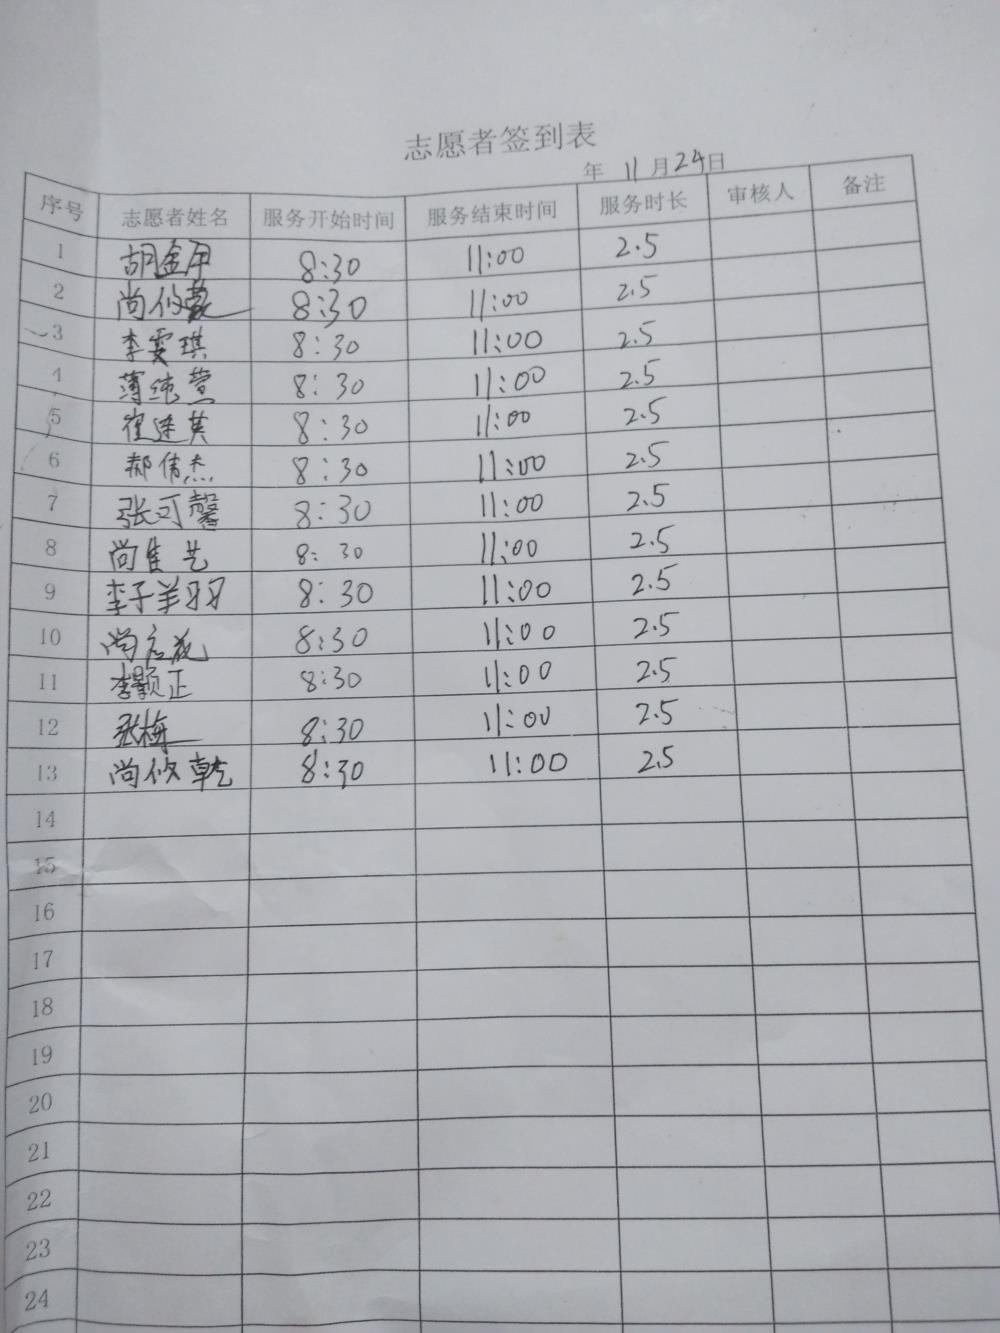 志愿者签到表
年 11月24日
序号 志愿者姓名 服务开始时间 服务结束时间 服务时长 审核人 备注
1 胡金甲 8:30 11:00 2.5
2 尚攸 8:30 11:00 2.5
3 李雯琪 8:30 11:00 2.5
4 薄纯萱 8:30 11:00 2.5
5 崔继英 8:30 11:00 2.5
6 郝伟杰 8:30 11:00 2.5
7 张可馨 8:30 11:00 2.5
8 尚隹艺 8:30 11:00 2.5
9 李子羊羽 8:30 11:00 2.5
10 尚 8:30 11:00 2.5
11 李颢正 8:30 11:00 2.5
12 张梅 8:30 11:00 2.5
13 尚攸乾 8:30 11:00 2.5
14
15
16
17
18
19
20
21
22
23
24